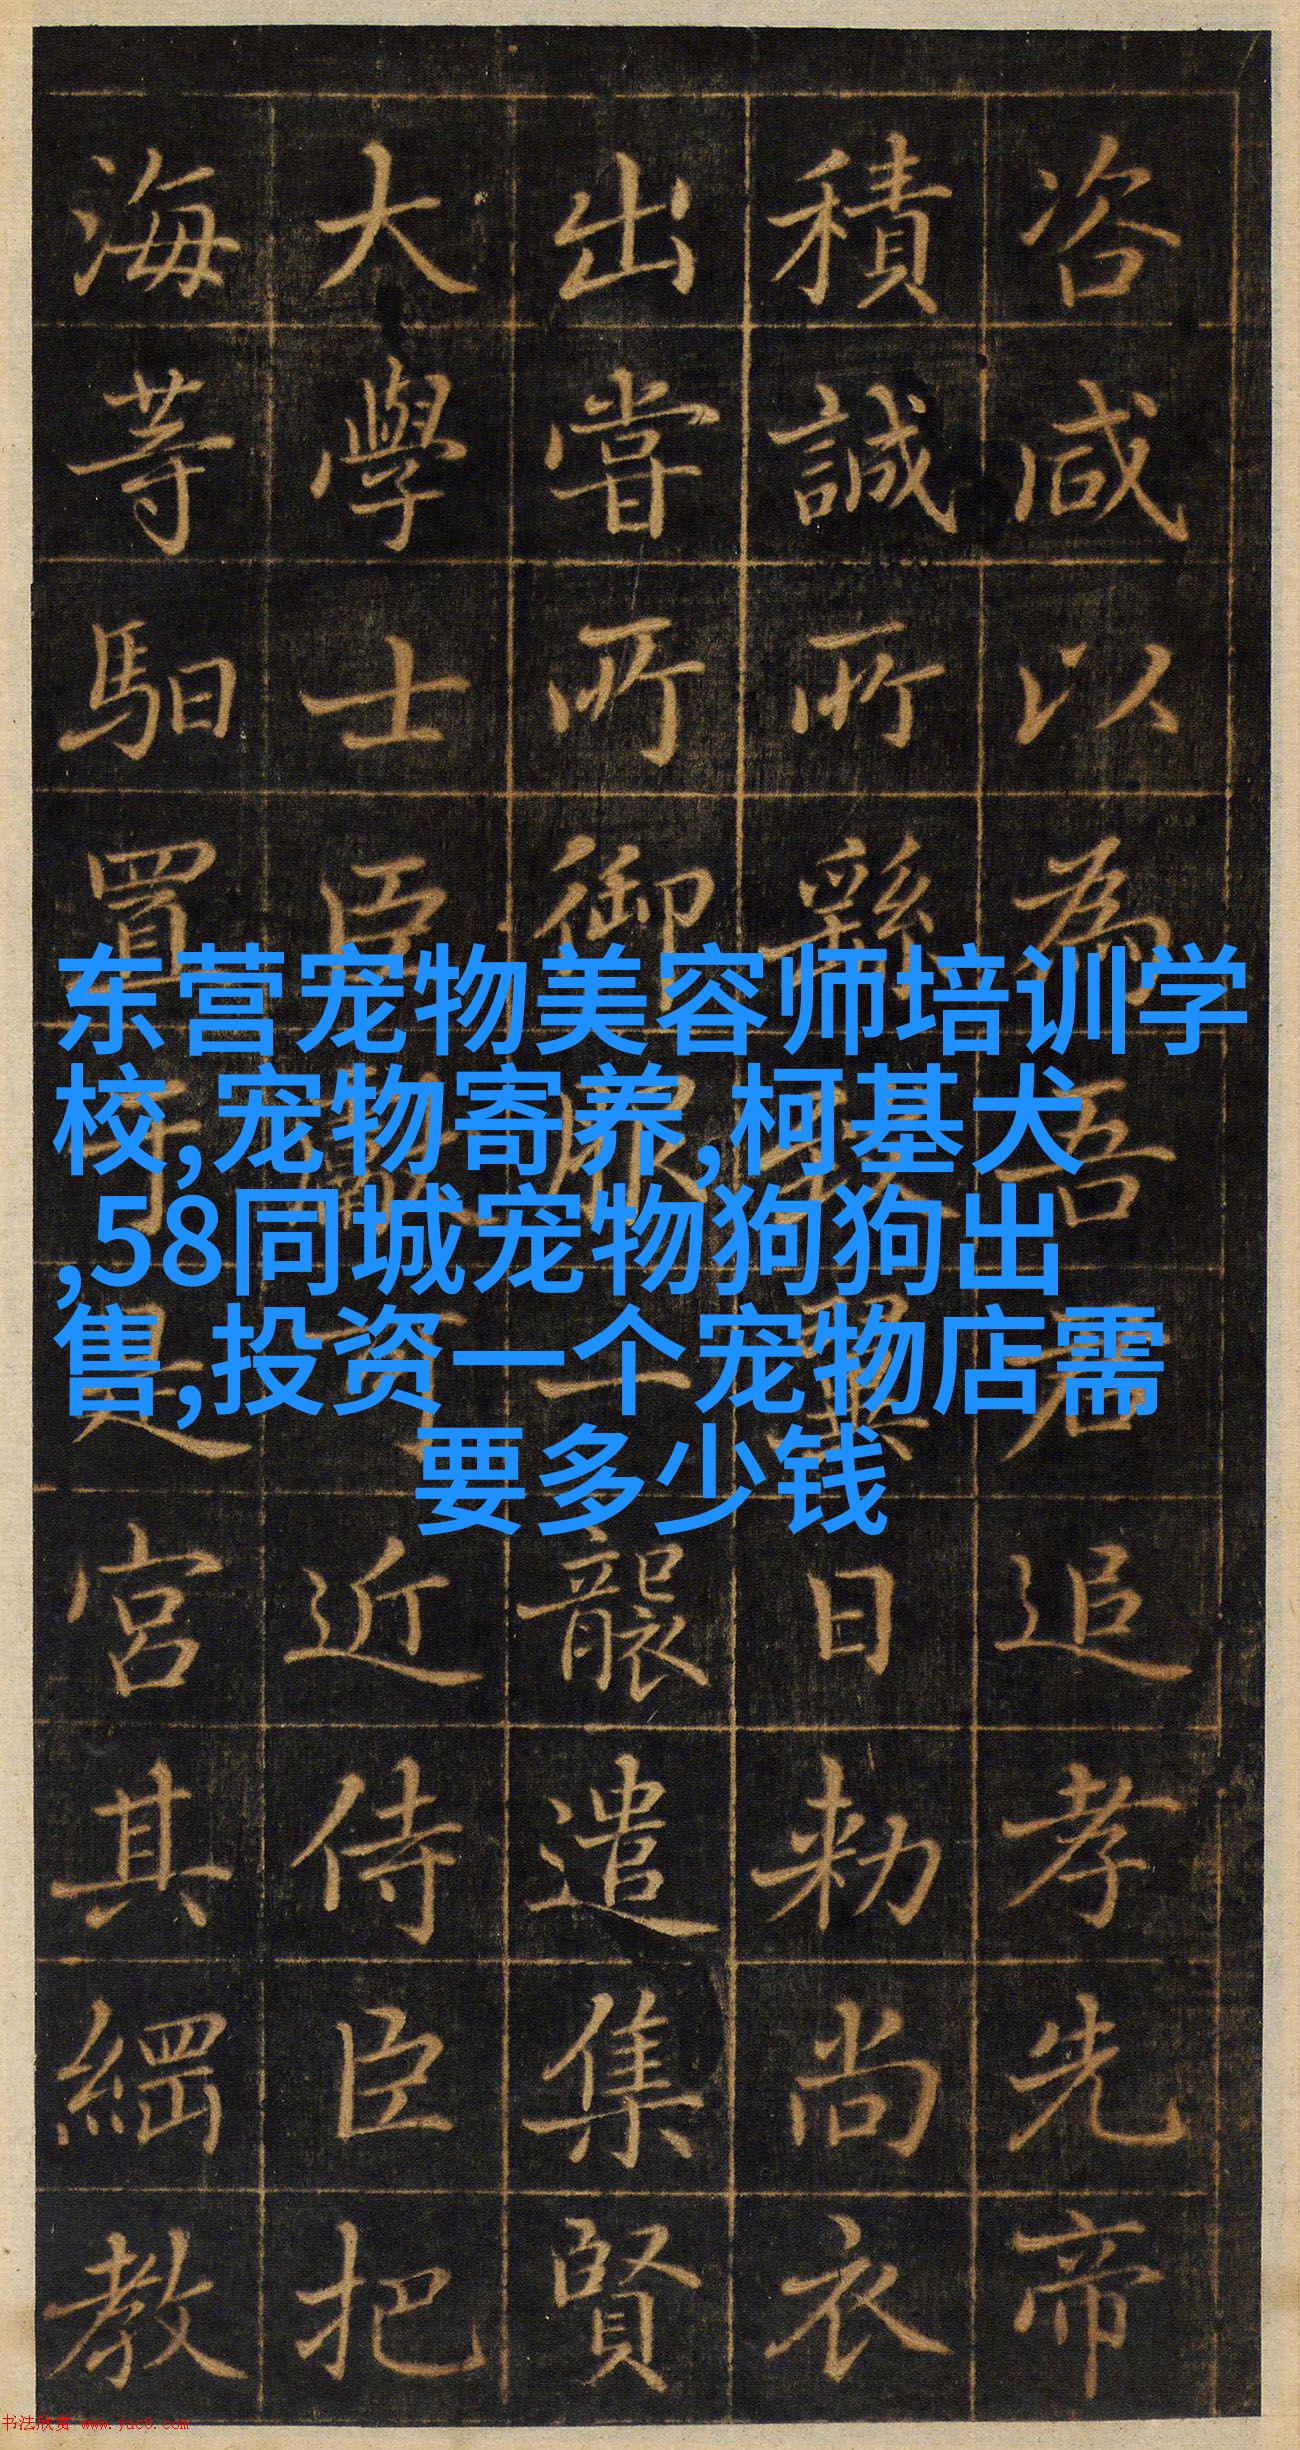 咨咸以為吾君追孝先帝
積誠所繇日勑尚衣
出嘗所御服一襲遣集賢
大學士臣近侍臣把
海等馹置是宮其綱教
东营宠物美容师培训学
校,宠物寄养,柯基犬
,58同城宠物狗狗出
售,投资一个宠物店需
要多少钱
书法欣赏 www.yac8.com